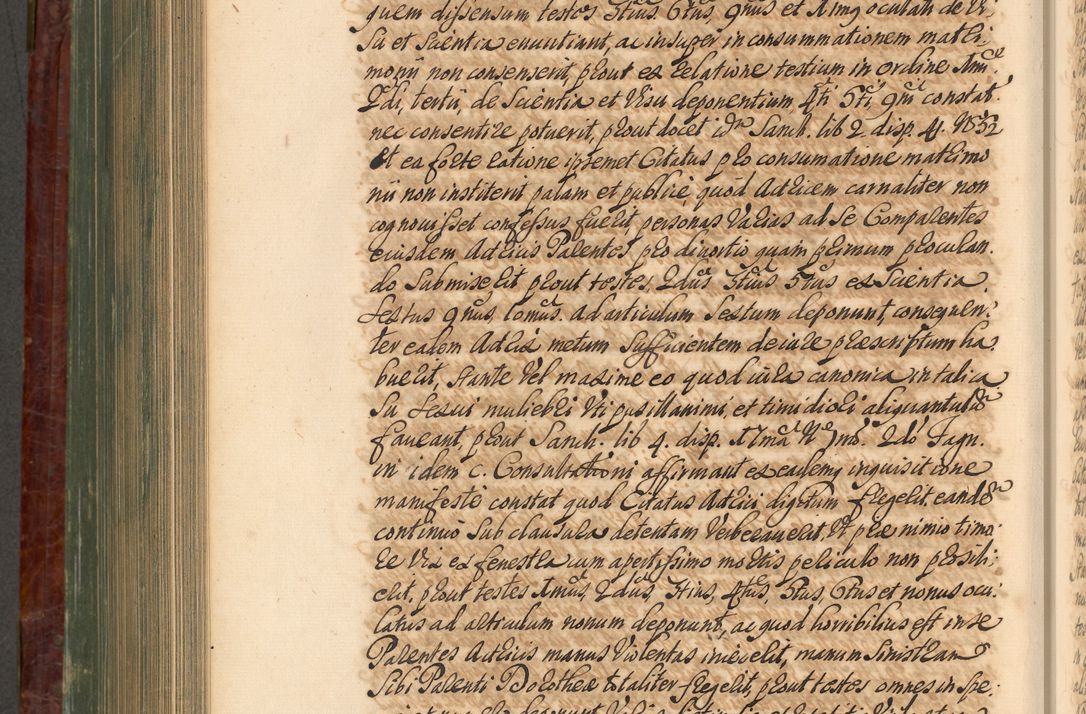 quem dissensum testes 3tius. 6tus, 9nus et Xmus oculati de Vi,
su et Scientia enuntiant, ac insuper in consummationem matri,
monii non consenserit, prout ex Relatione testium in ordine Ami,
2di, tertii, de Scientia et Visu deponentium 4ti 5ti 9ni constat.
nec consentire potuerit, prout docet idem Sanch. lib 2. disp. 4. N
Et ea forte ratione ipsemet Citatus pro consumatione matrimo
nii non institerit palam et publicè quod Actricem carnaliter non
cognovisset confessus fuerit, personas Varias ad se Comparentes
eiusdem Actricis Parentes pro divortio quam primum procuran,
do submiserit prout testes, 2dus 3tius 5tus ex Scientia.
Sextus 9nus ad articulum Sextum deponunt, consequen,
ter eadem Actrix metum Sufficientem de iure præscriptum ha,
buerit, stante Vel maxime eo quod iura canonica in tali ca
su Sexui muliebri Uti pusillanimi, et timidiori aliquantulum
faveant, prout Sanch. lib 4. disp. 2do Fagn.
in idem c. Consultationi affirmant ex eademq inquisitione
manifestè constat quod Citatus Actrici digitum fregerit eandem
continuò sub clausura detentam Verberaverit, Ut præ nimio timo,
re Vix ex fenestra cum apertissimo mortis periculo non prosili,
erit. prout testes Amus, 2dus, 3tius, 4tus, 5tus, 6tus et nonus ocu,
latus ad articulum nonum deponunt, ac quod horribilius est in se
Parentes Actricis manus Violentas iniecerit, manum Sinistram
Sibi Parenti Dorotheæ totaliter fregerit, prout testes omnes in spe,